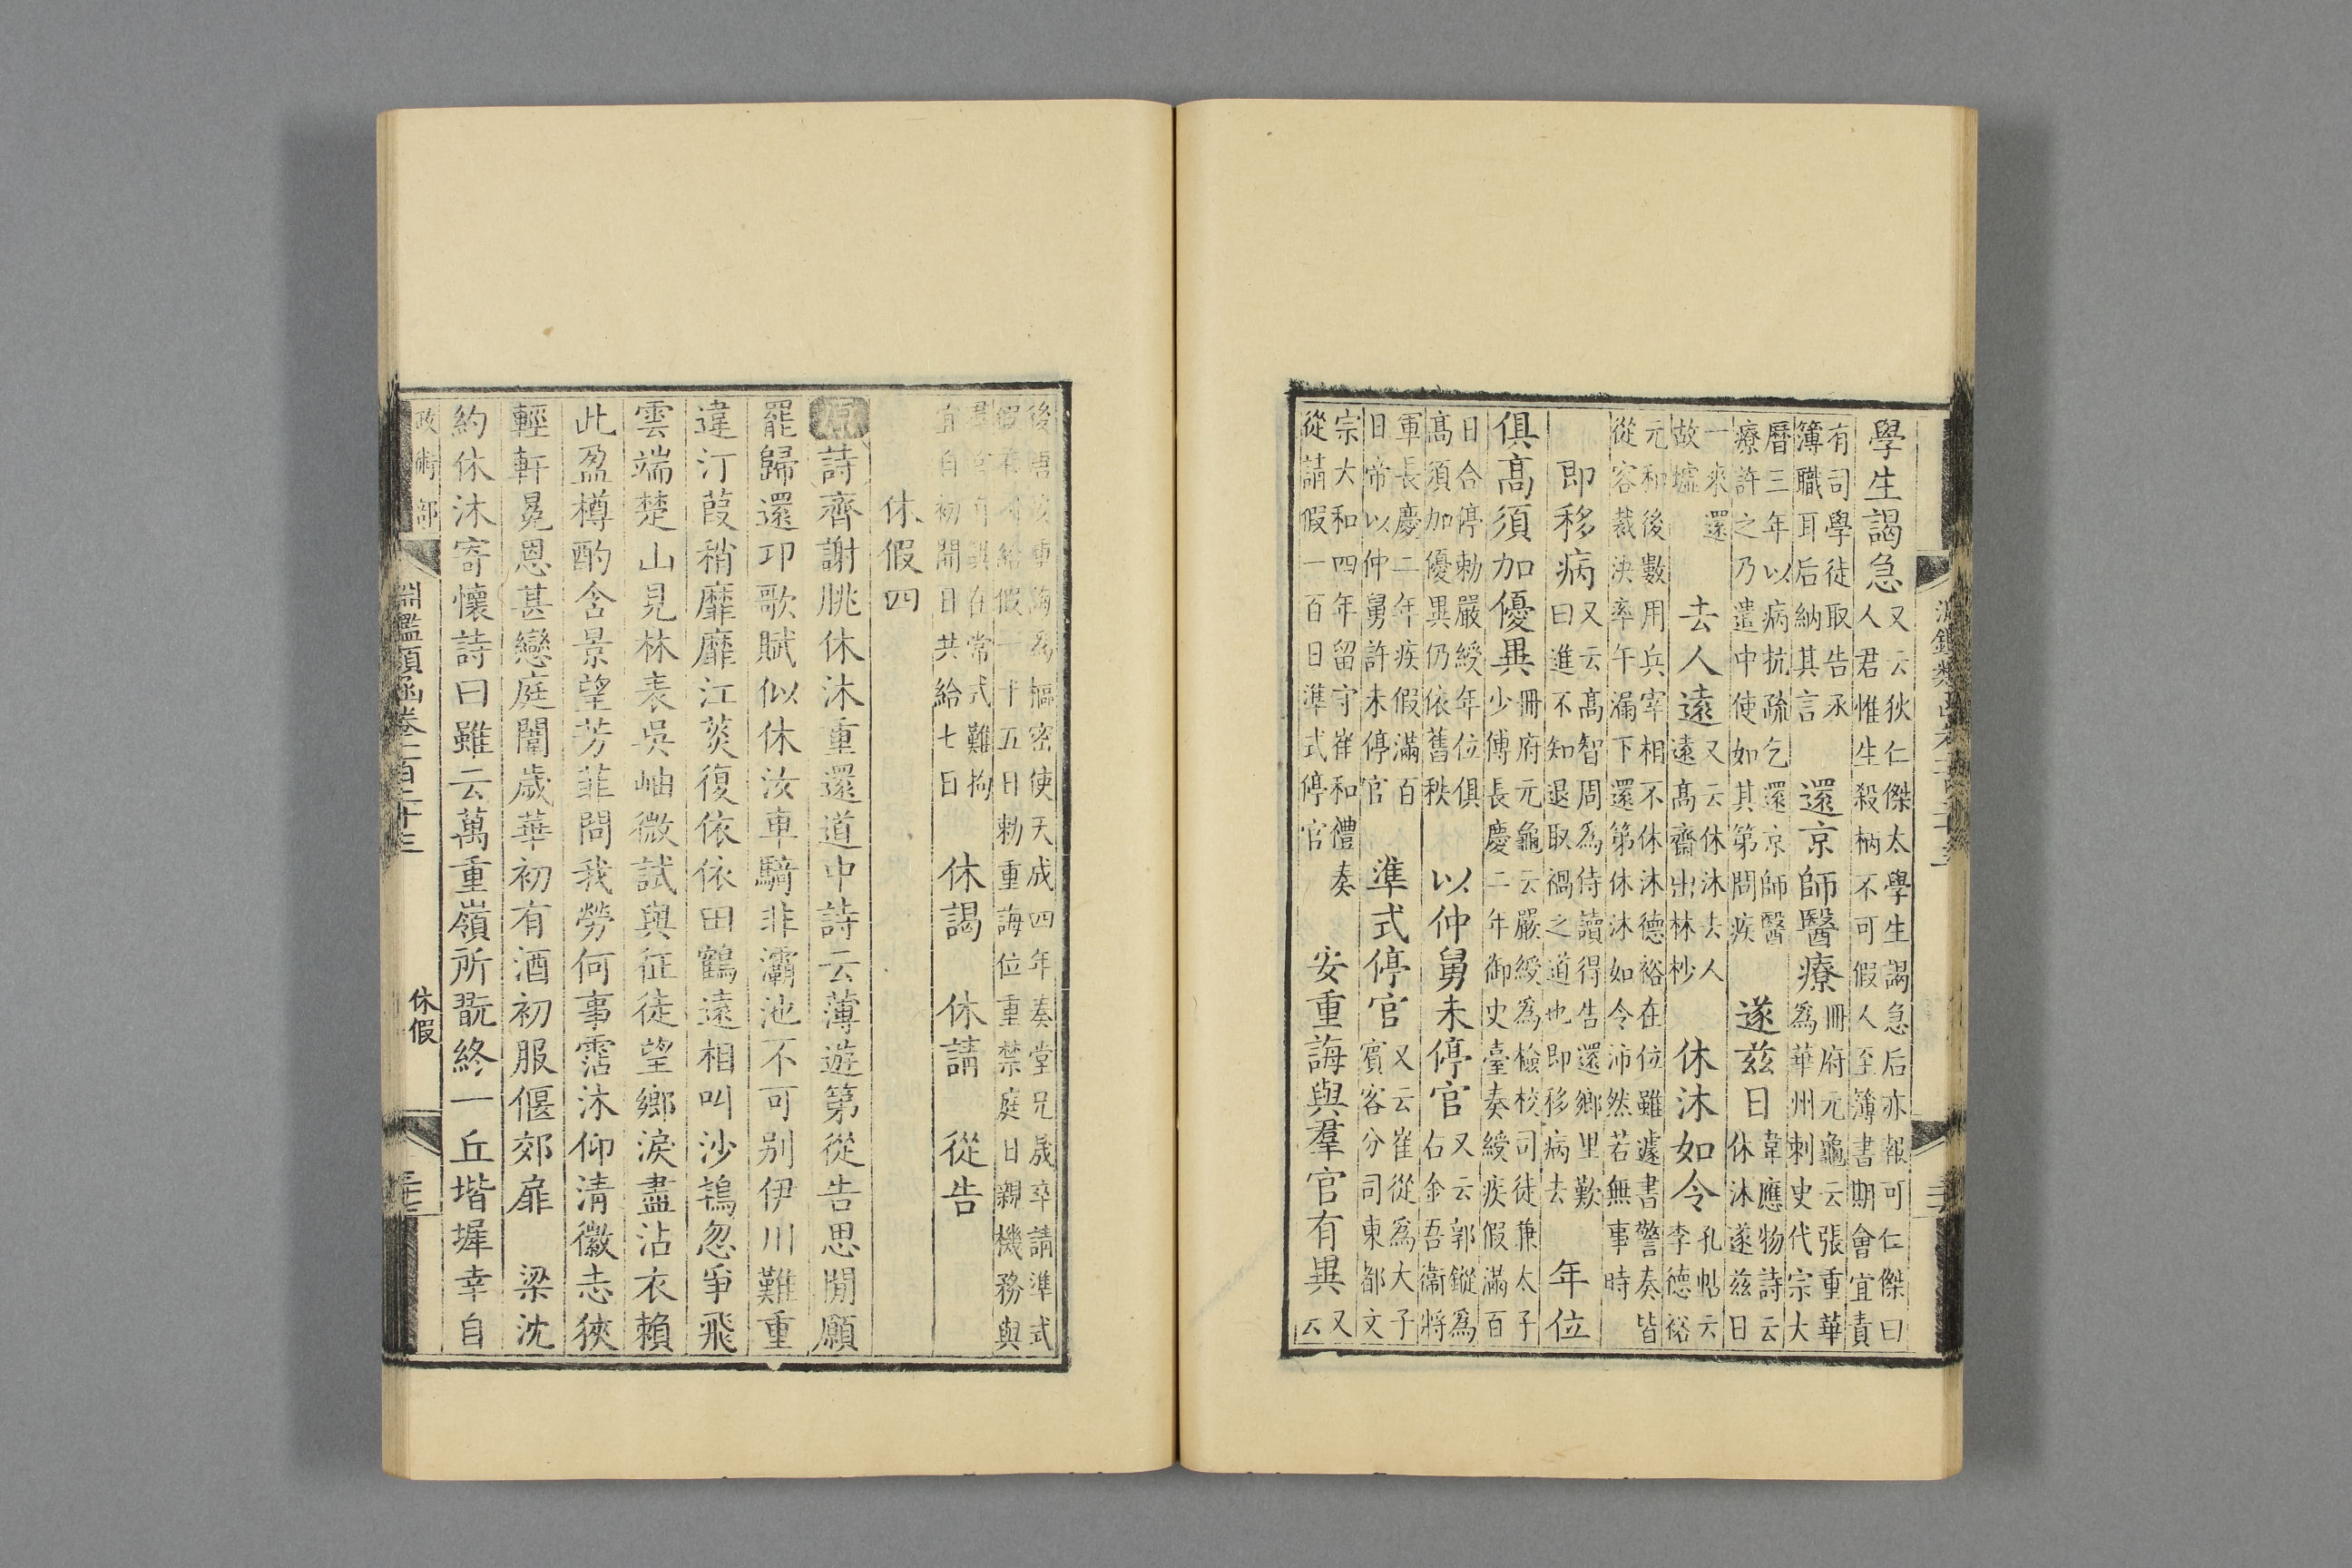 學生謁急又云狄仁傑太學生謁急后亦報可仁傑曰人君惟生殺柄不可假人至簿書期會宜責
有司學徒取告承簿職耳后納其言　還京師醫療冊府元龜云張重華為華州刺史代宗大
曆三年以病抗疏乞還京師醫療許之乃遣中使如其第問疾　遂兹日韋應物詩云休沐遂兹日
一來還故墟　去人遠又云休沐去人遠高齋出林杪　休沐如令孔帖云李德裕
元和後數用兵宰相不休沐德裕在位雖遽書警奏皆從容裁決率午漏下還第休沐如令沛然若無事時
即移病又云高智周為侍讀得告還鄉里歎曰進不知退取禍之道也即移病去　年位
俱高須加優異冊府元龜云嚴綬為檢校司徒兼太子少傅長慶二年御史臺奏綬疾假滿百
日合停勅嚴綬年位俱高須加優異仍依舊秩　以仲舅未停官又云郭鏦為右金吾衞將
軍長慶二年疾假滿百日帝以仲舅許未停官　準式停官又云崔從為大子賓客分司東都文
宗大和四年留守崔和禮奏從請假一百日準式停官　安重誨與羣官有異又云
後唐安重誨為樞密使天成四年奏堂兄晟卒請準式假有司給假一十五日勅重誨位重禁庭日親機務與
羣官有異在常式難拘宜自初聞日共給七日　休謁　休請　從告
休假四
原詩齊謝朓休沐重還道中詩云薄遊第從告思閒願
罷歸還卭歌賦似休汝車騎非灞池不可别伊川難重
違汀葭稍靡靡江菼復依依田鶴遠相叫沙鴇忽爭飛
雲端楚山見林表吳岫微試與征徒望鄉淚盡沾衣賴
此盈樽酌含景望芳菲問我勞何事霑沐仰清徽志狹
輕軒冕恩甚戀庭闈歲華初有酒初服偃郊扉　梁沈
約休沐寄懷詩曰雖云萬重嶺所翫終一丘堦墀幸自
政術部　淵鑑類函卷一百二十三　休假